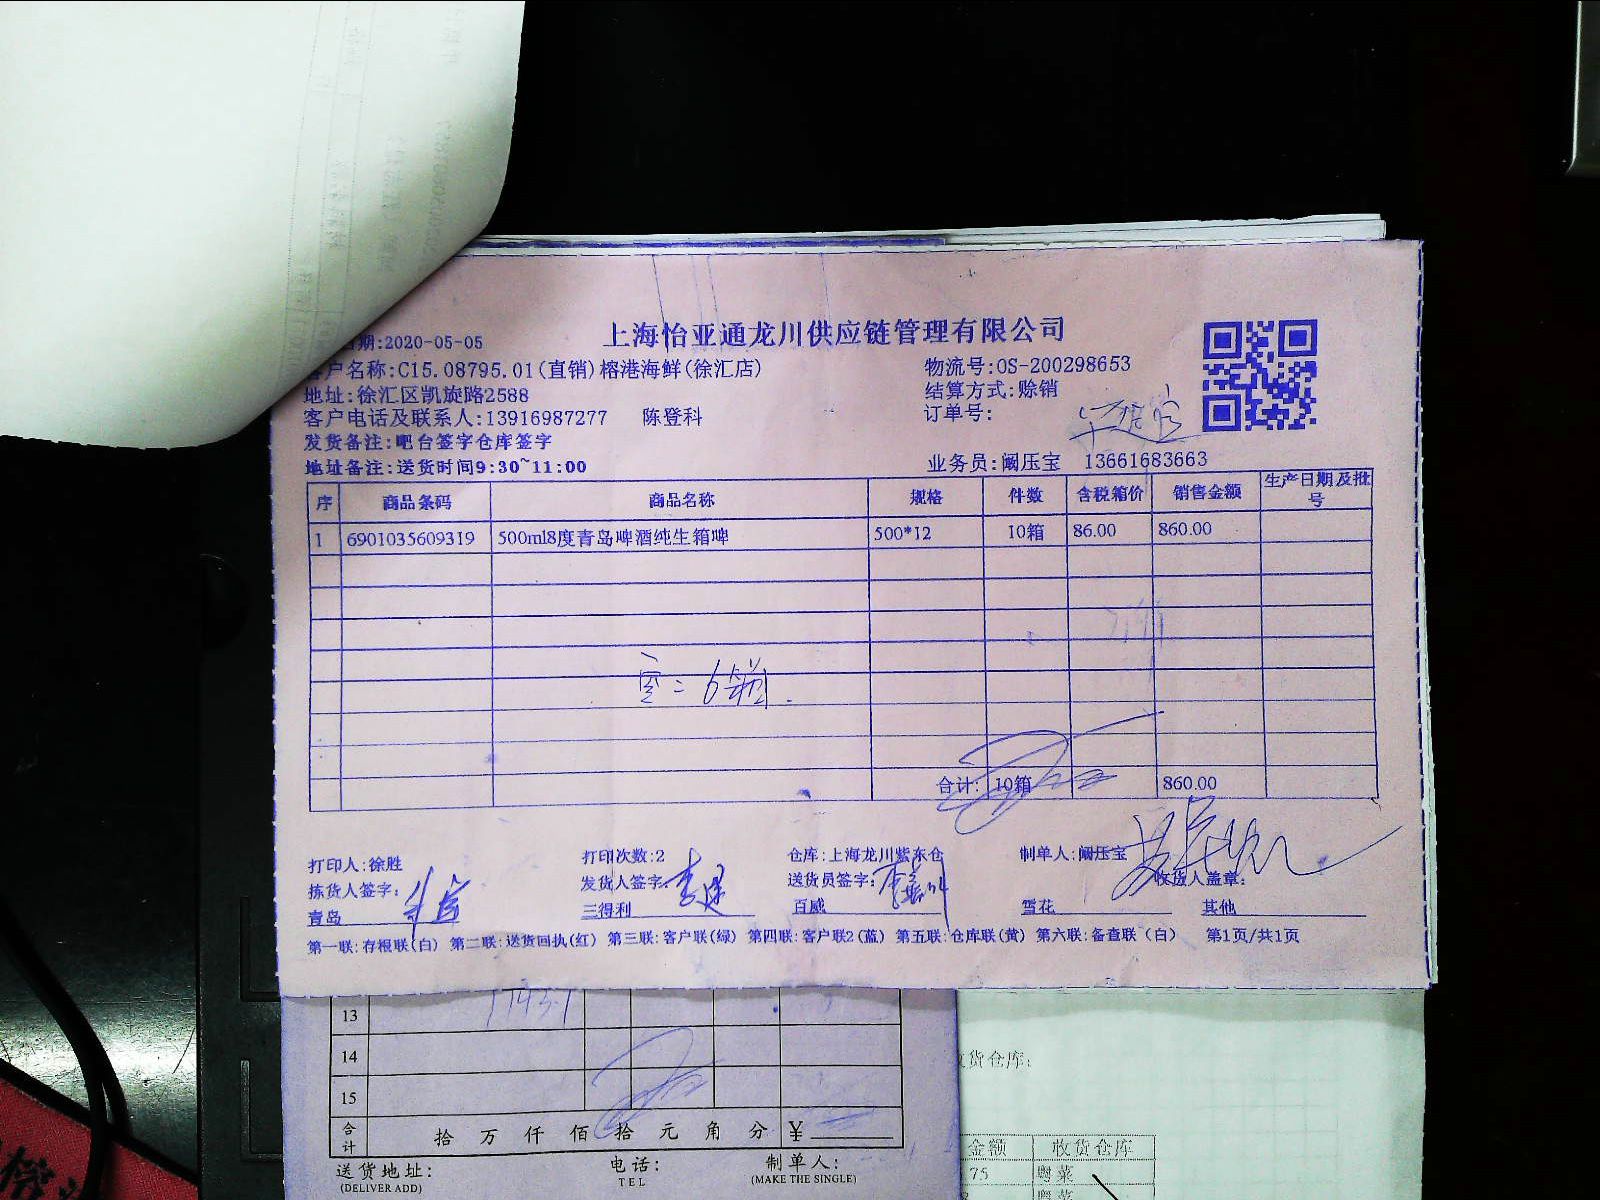 上海怡亚通龙川供应链管理有限公司
期:2020-05-05
户名称:C15.08795.01(直销)榕港海鲜(徐汇店)
物流号:OS-200298653
地址:徐汇区凯旋路2588
结算方式:赊销
客户电话及联系人:13916987277 陈登科
订单号:
发货备注:吧台签字仓库签字
地址备注:送货时间9:30~11:00
业务员:阚压宝 13661683663
序 商品条码 商品名称 规格 件数 含税箱价 销售金额 生产日期及批号
1 6901035609319 500ml8度青岛啤酒纯生箱啤 500*12 10箱 86.00 860.00
空=6箱.
合计: 10箱 860.00
打印人:徐胜 打印次数:2 仓库:上海龙川紫东仓 制单人:阚压宝
拣货人签字: 发货人签字: 送货员签字: 收货人盖章:
青岛 三得利 百威 雪花 其他
第一联:存根联(白) 第二联:送货回执(红) 第三联:客户联(绿) 第四联:客户联2(蓝) 第五联:仓库联(黄) 第六联:备查联(白) 第1页/共1页
13
14
15
合计 拾 万 仟 佰 拾 元 角 分 ¥
送货地址: 电话: 制单人:
(DELIVER ADD) TEL (MAKE THE SINGLE)
货仓库:
金额 收货仓库
75 粤菜
粤菜